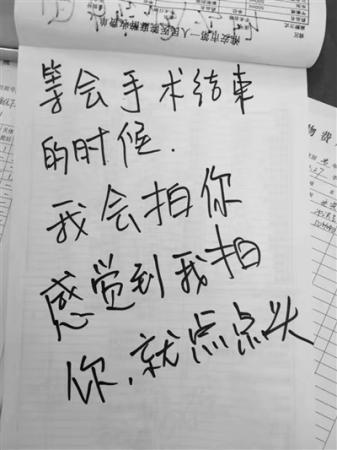 等会手术结束
的时候.
我会拍你
感觉到我拍
你,就点点头